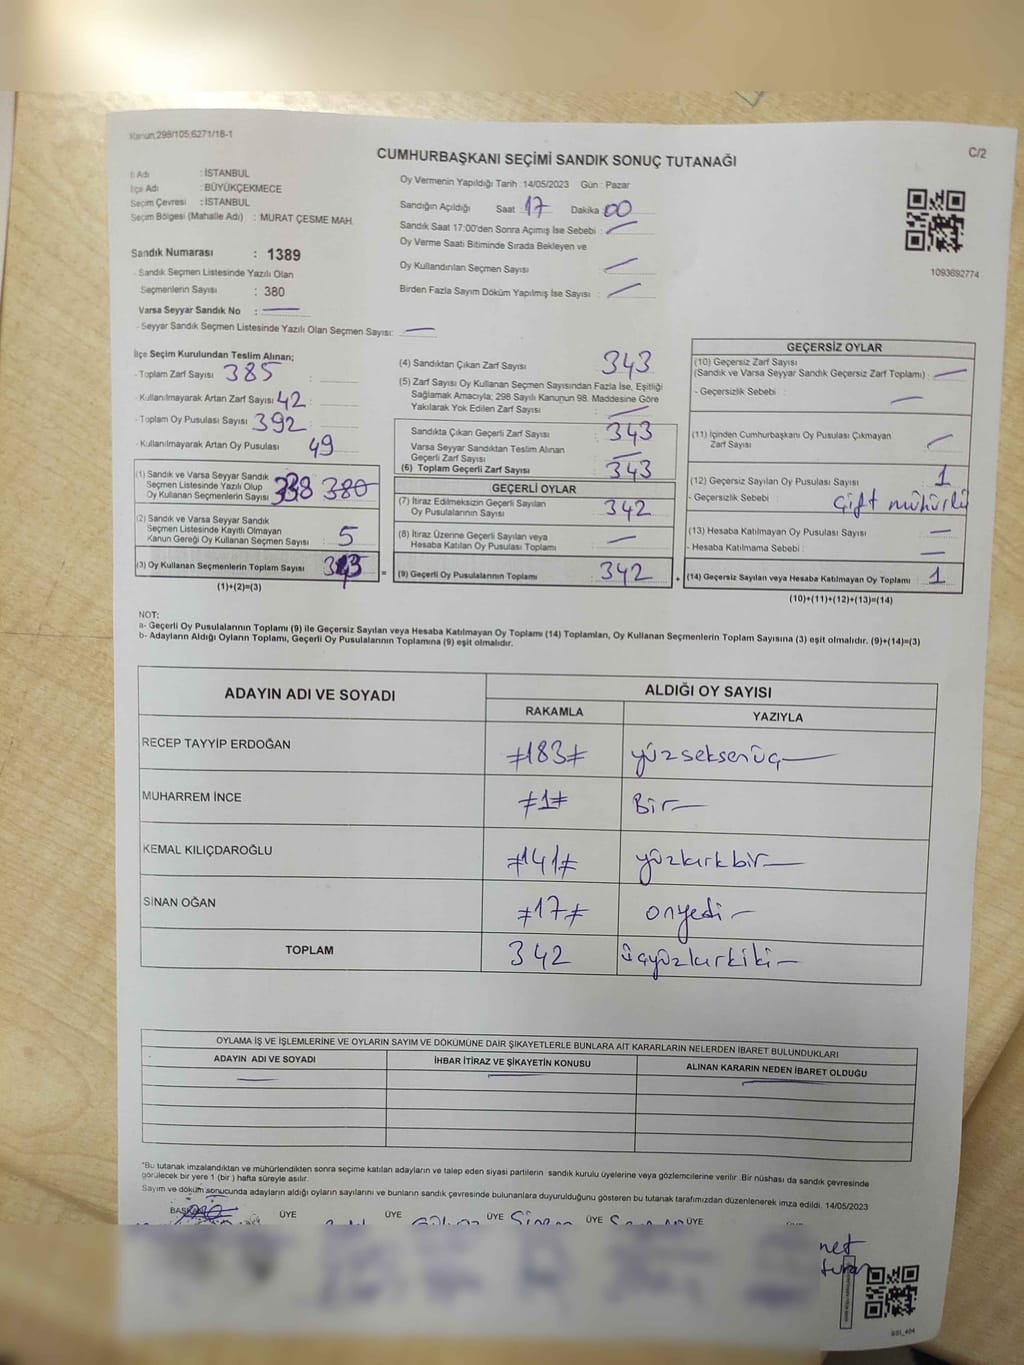 Kanun;298/105;6271/18-1
C/2
CUMHURBAŞKANI SEÇİMİ SANDIK SONUÇ TUTANAĞI
İl Adı : İSTANBUL
İlçe Adı : BÜYÜKÇEKMECE
Seçim Çevresi : İSTANBUL
Seçim Bölgesi (Mahalle Adı) : MURAT ÇEŞME MAH.
Sandık Numarası : 1389
- Sandık Seçmen Listesinde Yazılı Olan
Seçmenlerin Sayısı : 380
Varsa Seyyar Sandık No :
- Seyyar Sandık Seçmen Listesinde Yazılı Olan Seçmen Sayısı:
Oy Vermenin Yapıldığı Tarih : 14/05/2023 Gün : Pazar
Sandığın Açıldığı Saat 17 Dakika 00
Sandık Saat 17:00'den Sonra Açılmış İse Sebebi :
Oy Verme Saati Bitiminde Sırada Bekleyen ve
Oy Kullandırılan Seçmen Sayısı :
Birden Fazla Sayım Döküm Yapılmış İse Sayısı :
1093692774
İlçe Seçim Kurulundan Teslim Alınan;
- Toplam Zarf Sayısı 385 :
- Kullanılmayarak Artan Zarf Sayısı 42 :
- Toplam Oy Pusulası Sayısı 392 :
- Kullanılmayarak Artan Oy Pusulası 49 :
(1) Sandık ve Varsa Seyyar Sandık
Seçmen Listesinde Yazılı Olup
Oy Kullanan Seçmenlerin Sayısı 338 380
(2) Sandık ve Varsa Seyyar Sandık
Seçmen Listesinde Kayıtlı Olmayan
Kanun Gereği Oy Kullanan Seçmen Sayısı 5
(3) Oy Kullanan Seçmenlerin Toplam Sayısı 343 =
(1)+(2)=(3)
(4) Sandıktan Çıkan Zarf Sayısı 343
(5) Zarf Sayısı Oy Kullanan Seçmen Sayısından Fazla İse, Eşitliği
Sağlamak Amacıyla; 298 Sayılı Kanunun 98. Maddesine Göre
Yakılarak Yok Edilen Zarf Sayısı
Sandıkta Çıkan Geçerli Zarf Sayısı 343
Varsa Seyyar Sandıktan Teslim Alınan
Geçerli Zarf Sayısı
(6) Toplam Geçerli Zarf Sayısı 343
GEÇERLİ OYLAR
(7) İtiraz Edilmeksizin Geçerli Sayılan
Oy Pusulalarının Sayısı 342
(8) İtiraz Üzerine Geçerli Sayılan veya
Hesaba Katılan Oy Pusulası Toplamı
(9) Geçerli Oy Pusulalarının Toplamı 342 +
GEÇERSİZ OYLAR
(10) Geçersiz Zarf Sayısı
(Sandık ve Varsa Seyyar Sandık Geçersiz Zarf Toplamı) :
- Geçersizlik Sebebi :
(11) İçinden Cumhurbaşkanı Oy Pusulası Çıkmayan
Zarf Sayısı
(12) Geçersiz Sayılan Oy Pusulası Sayısı 1
- Geçersizlik Sebebi : Çift mühürlü
(13) Hesaba Katılmayan Oy Pusulası Sayısı
- Hesaba Katılmama Sebebi :
(14) Geçersiz Sayılan veya Hesaba Katılmayan Oy Toplamı 1
(10)+(11)+(12)+(13)=(14)
NOT:
a- Geçerli Oy Pusulalarının Toplamı (9) ile Geçersiz Sayılan veya Hesaba Katılmayan Oy Toplamı (14) Toplamları, Oy Kullanan Seçmenlerin Toplam Sayısına (3) eşit olmalıdır. (9)+(14)=(3)
b- Adayların Aldığı Oyların Toplamı, Geçerli Oy Pusulalarının Toplamına (9) eşit olmalıdır.
ADAYIN ADI VE SOYADI
ALDIĞI OY SAYISI
RAKAMLA YAZIYLA
RECEP TAYYİP ERDOĞAN ≠183≠ yüzseksenüç
MUHARREM İNCE ≠1≠ Bir
KEMAL KILIÇDAROĞLU ≠141≠ yüzkırkbir
SİNAN OĞAN ≠17≠ onyedi
TOPLAM 342 üçyüzkırkiki
OYLAMA İŞ VE İŞLEMLERİNE VE OYLARIN SAYIM VE DÖKÜMÜNE DAİR ŞİKAYETLERLE BUNLARA AİT KARARLARIN NELERDEN İBARET BULUNDUKLARI
ADAYIN ADI VE SOYADI İHBAR İTİRAZ VE ŞİKAYETİN KONUSU ALINAN KARARIN NEDEN İBARET OLDUĞU
*Bu tutanak imzalandıktan ve mühürlendikten sonra seçime katılan adayların ve talep eden siyasi partilerin sandık kurulu üyelerine veya gözlemcilerine verilir. Bir nüshası da sandık çevresinde
görülecek bir yere 1 (bir) hafta süreyle asılır.
Sayım ve döküm sonucunda adayların aldığı oyların sayılarını ve bunların sandık çevresinde bulunanlara duyurulduğunu gösteren bu tutanak tarafımızdan düzenlenerek imza edildi. 14/05/2023
BAŞKAN ÜYE ÜYE ÜYE ÜYE ÜYE